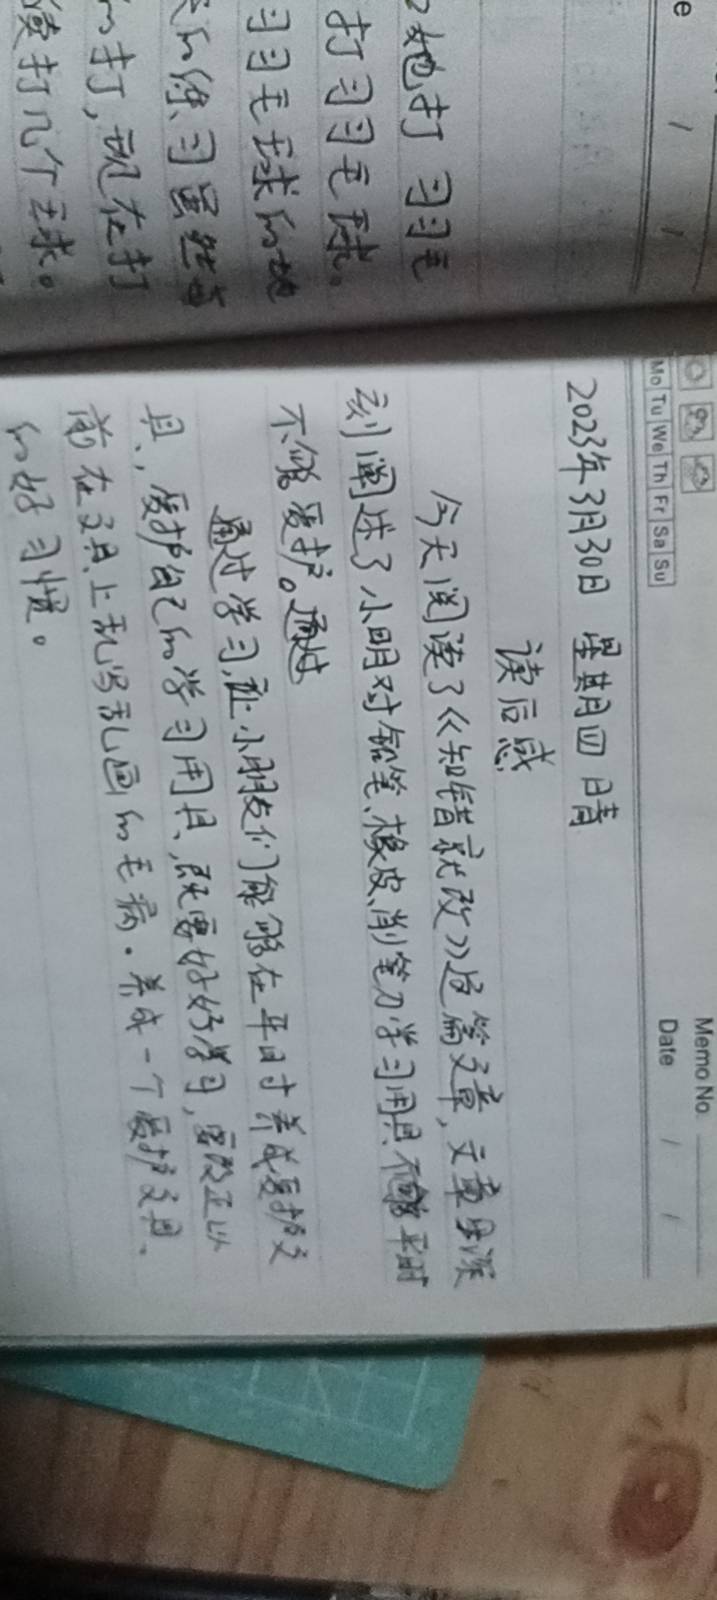 e / /
她打 习习毛
打习习毛球。
习习毛球的地
的练习虽然当
的打,现在打
读打几个毛球。
Memo No.
Mo Tu We Th Fr Sa Su
Date / /
2023年3月30日 星期四 晴
读后感
今天阅读了《知错就改》这篇文章,文章深
刻阐述了小明对铅笔、橡皮、削笔刀学习用具,平时
不能爱护。通过
通过学习,让小朋友们能够在平日寸养成爱护文
具、,爱护自己的学习用具,既要好好学习,要改正以
前在文具上乱写乱画的毛病.养成一个爱护文具、
的好习惯。